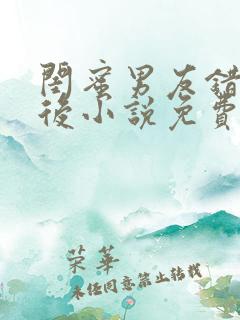 閨蜜男友錯
後小說免費
荣華
未经同意禁止转载